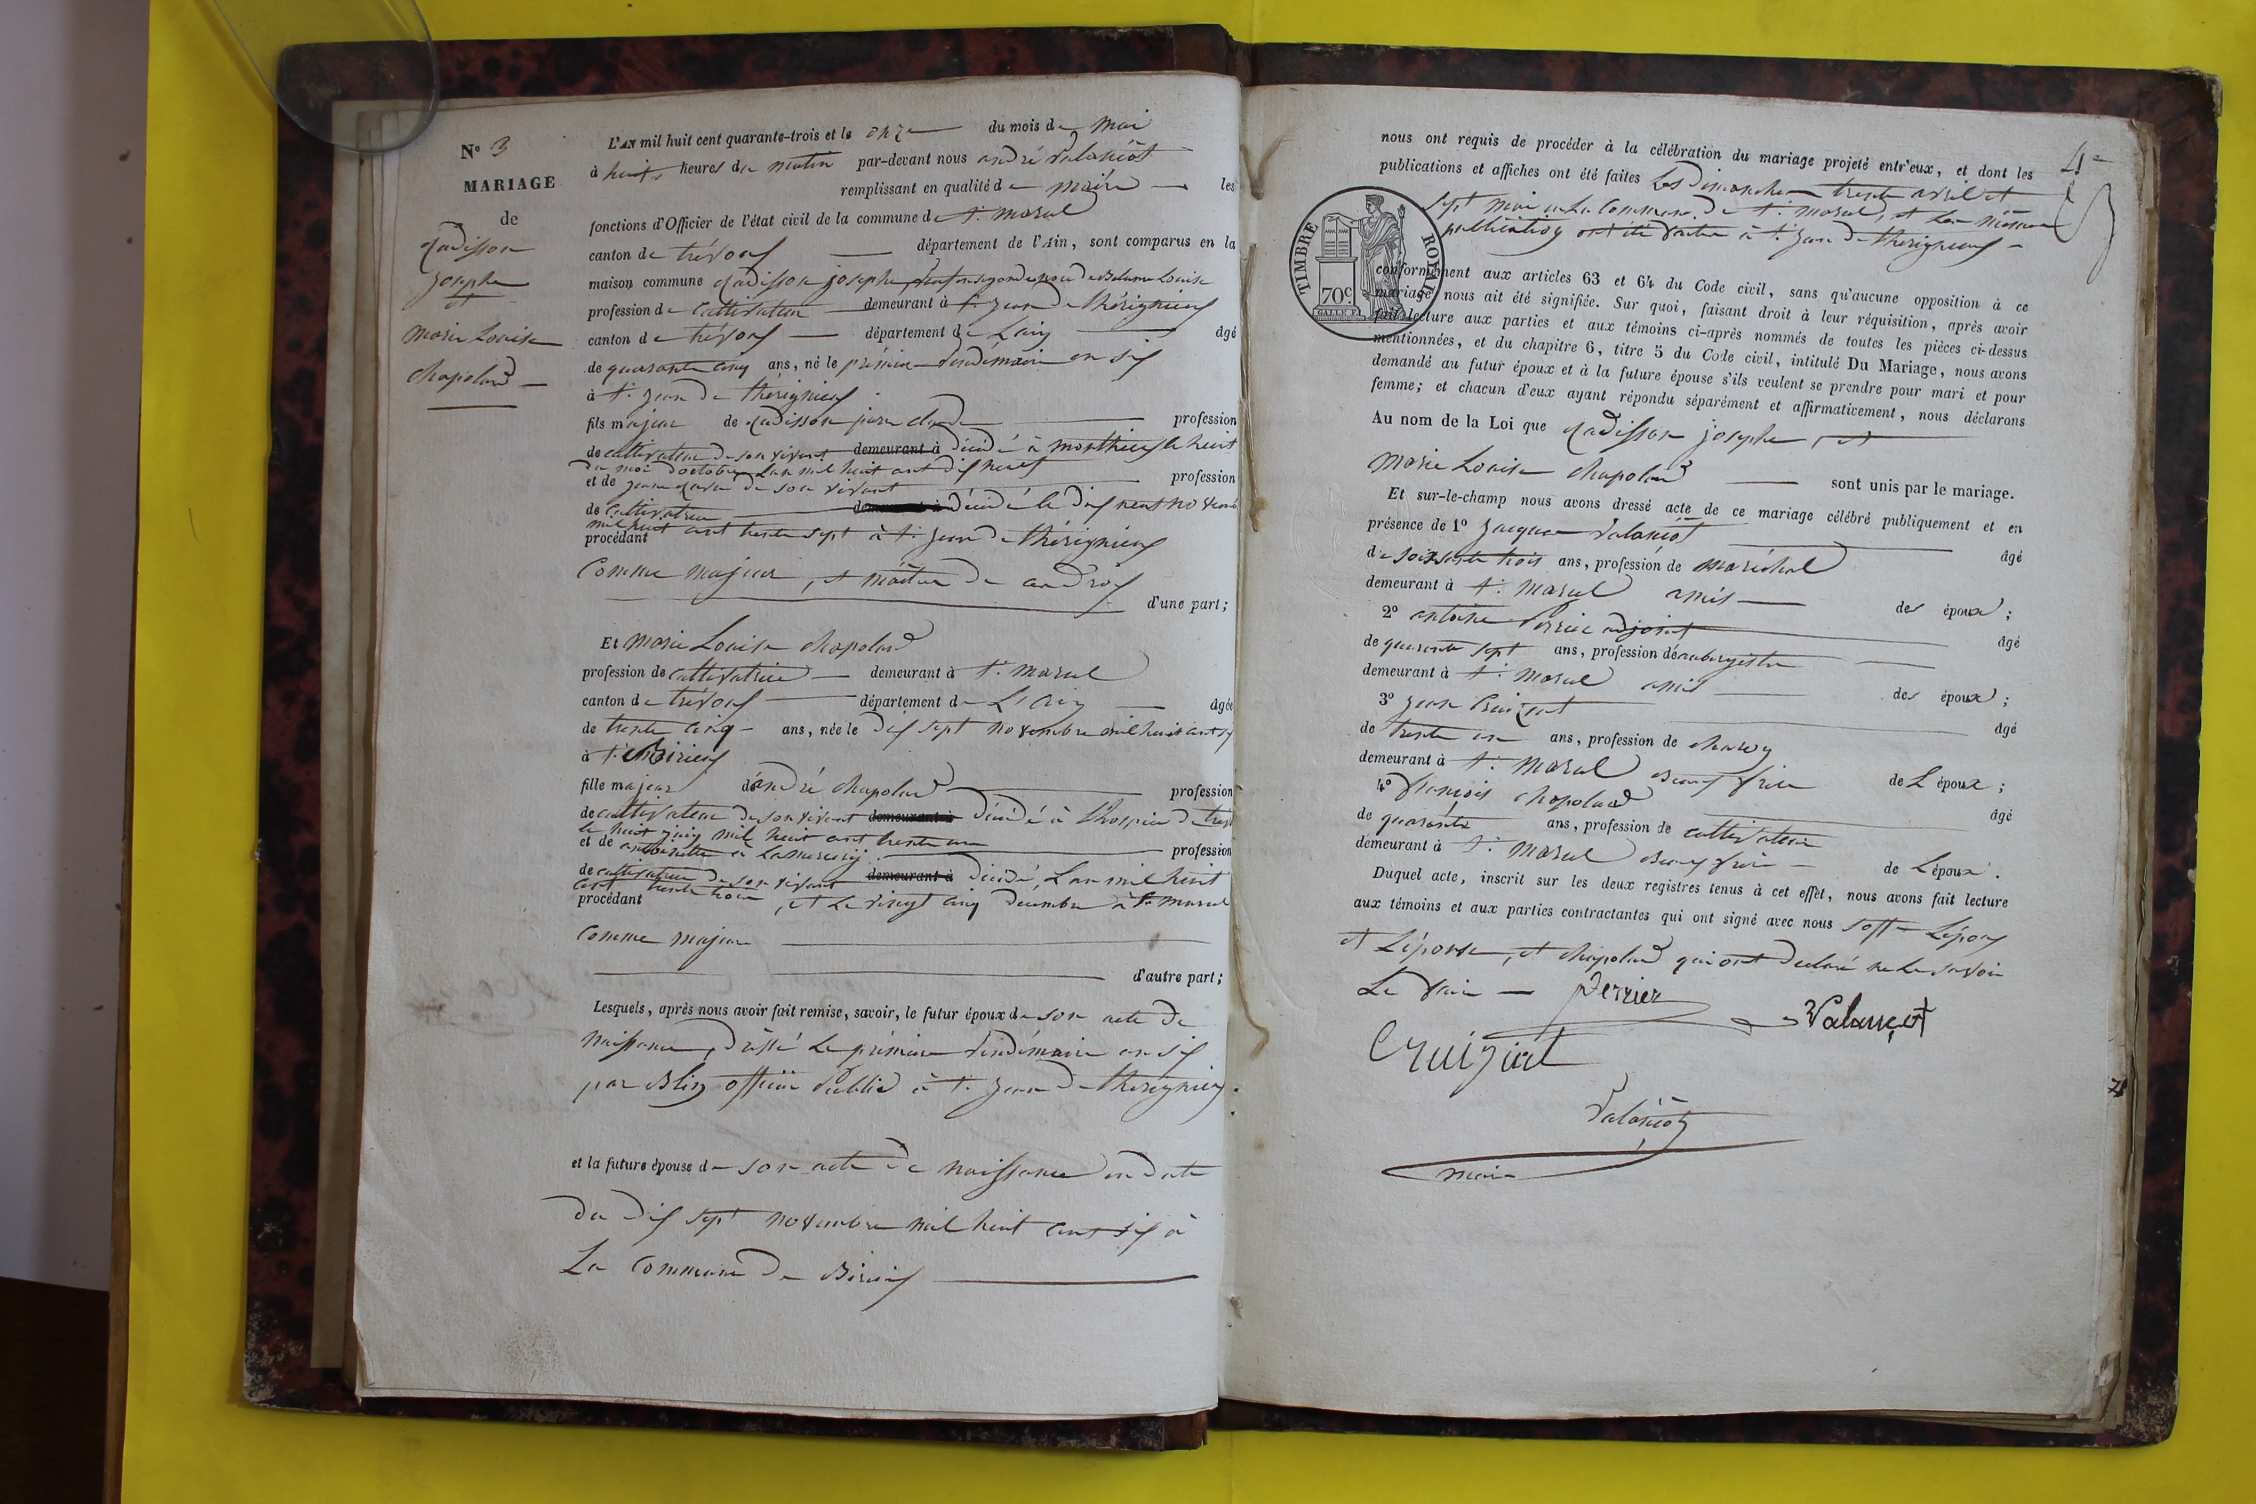 N° 3
MARIAGE
de
Joseph
et
marie Louise
chapoland
L'AN mil huit cent quarante-trois et le onze du mois de Mai
à huit heures du matin par-devant nous andré Valançot
remplissant en qualité de maire les
fonctions d'Officier de l'état civil de la commune de St. marcel
canton de trévoux département de l'Ain, sont comparus en la
maison commune joseph Louise
profession de cultivateur demeurant à St. jean de thurigneux
canton de trévoux département de Lain âgé
de quarante cinq ans, né le premier vendémaire an six
à St. jean de thurigneux
fils majeur de profession
de cultivateur de son vivant demeurant à décédé à monthieux le huit
du moi d'octobre Lan mil huit cent dix neuf
et de jeanne de son vivant profession
de cultivatrice demeurant à décédé le dix neuf novem
mil huit cent trente sept à St. jean de thurigneux
procédant
Comme majeur, et maître de ces droi
d'une part;
Et marie Louise chapoland
profession de cultivatrice demeurant à St. marcel
canton de trévoux département de L'Ain âgée
de trente cinq ans, née le dix sept novembre mil huit cent six
à Birieux
fille majeur de andré chapoland profession
de cultivateur de son vivant demeurant à décédé à l'hospice de
le huit juin mil huit cent trente un
et de antoinette profession
de cultivatrice de son vivant demeurant à décédé, Lan mil huit
cent trente trois, et Le vingt cinq decembre à St. marcel
procédant
comme majeur
d'autre part;
Lesquels, après nous avoir fait remise, savoir, le futur époux de son acte de
naissance, dressé Le premier vendémaire an six
par officier Public à St. jean de thurigneux.
et la future épouse de son acte de naissance en date
du dix sept novembre mil huit cent six à
La commune de Birieux
nous ont requis de procéder à la célébration du mariage projeté entr'eux, et dont les
publications et affiches ont été faites Les Dimanche trente avril et
sept mai en la commune de St. marcel, et Les même
publication ont été à St. jean de thurigneux
TIMBRE ROYAL
70c
conformément aux articles 63 et 64 du Code civil, sans qu'aucune opposition à ce
mariage nous ait été signifiée. Sur quoi, faisant droit à leur réquisition, après avoir
fait lecture aux parties et aux témoins ci-après nommés de toutes les pièces ci-dessus
mentionnées, et du chapitre 6, titre 5 du Code civil, intitulé Du Mariage, nous avons
demandé au futur époux et à la future épouse s'ils veulent se prendre pour mari et pour
femme; et chacun d'eux ayant répondu séparément et affirmativement, nous déclarons
Au nom de la Loi que joseph, et
marie Louise chapoland sont unis par le mariage.
Et sur-le-champ nous avons dressé acte de ce mariage célébré publiquement et en
présence de 1° jacque Valançot âgé
de soixante trois ans, profession de maréchal
demeurant à St. marcel amis des époux;
2° antoine Perrier adjoint âgé
de quarente sept ans, profession de aubergiste
demeurant à St. marcel amis des époux;
3° jean Cruiziat âgé
de trente un ans, profession de
demeurant à St. marcel beaux frère de L'époux;
4° francois chapoland âgé
de quarante ans, profession de cultivateur
demeurant à St. marcel beaux frère de L'époux.
Duquel acte, inscrit sur les deux registres tenus à cet effet, nous avons fait lecture
aux témoins et aux parties contractantes qui ont signé avec nous Lépoux
et L'épouse, et chapoland qui ont déclaré ne Le savoir
Le faire Perrier
Valançot
Cruiziat
Valançot
maire